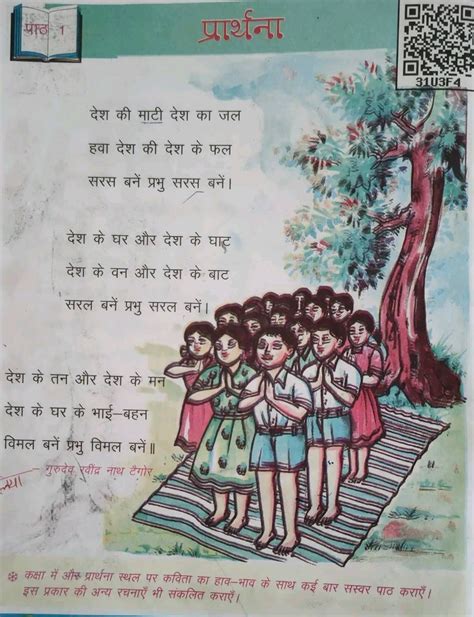 पाठ 1
प्रार्थना
31U3F4
देश की माटी देश का जल
हवा देश की देश के फल
सरस बनें प्रभु सरस बनें।
देश के घर और देश के घाट
देश के वन और देश के बाट
सरल बनें प्रभु सरल बनें।
देश के तन और देश के मन
देश के घर के भाई-बहन
विमल बनें प्रभु विमल बनें॥
– गुरुदेव रवीन्द्र नाथ टैगोर
कक्षा में और प्रार्थना स्थल पर कविता का हाव-भाव के साथ कई बार सस्वर पाठ कराएँ।
इस प्रकार की अन्य रचनाएँ भी संकलित कराएँ।